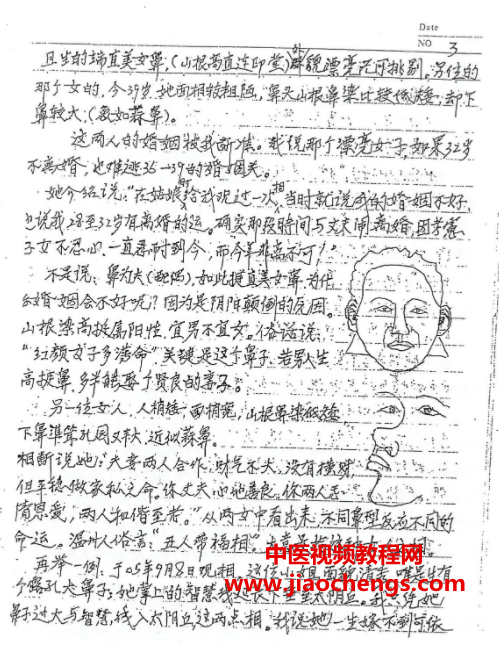 Date
NO 3
且生的端直美女鼻,(山根高直连印堂)外貌漂亮无可挑剔。另位的
那个女的,今39岁,她面相较粗陋,鼻头山根鼻梁比较低矮,却下
鼻较大,(教如蒜鼻)。
这两人的婚姻被我断准。我说那个漂亮女子,如果32岁
不离婚,也难逃35—39的婚姻关。
她介绍说:"在姑娘时给我观过一次相,当时就说我的婚姻不好,
也说我28至32岁有离婚的运。确实那段时间与丈夫闹离婚,因考虑
子女不忍心,一直忍耐到今,而今年非离不可!"
不是说:鼻为夫(配偶),如此挺直美女鼻,为什
么婚姻会不好呢?因为是阴阳颠倒的原因。
山根梁高挺属阳性,宜男不宜女。俗话说:
"红颜女子多薄命"关键是这个鼻子,若男人生
高挺鼻,多半能娶个贤良的妻子。
另一位女人,人稍矮,面稍宽,山根鼻梁低矮,
下鼻准
相断说她:"夫妻两人合作,财气不大,没有横财
但平稳做家私之命。你丈夫心地善良。你两人走
恩爱,两人和偕至老。"从两女中看出来,不同鼻型反应不同的
命运。温州人俗言:"丑人带福相"
再举一例,于05年9月8日观相
个露孔大鼻子,她掌上的智慧线
鼻子过大与智慧线入太阴丘这两点相。我说她一生嫁不到可依
中医视频教程网
www.jiaochengs.com